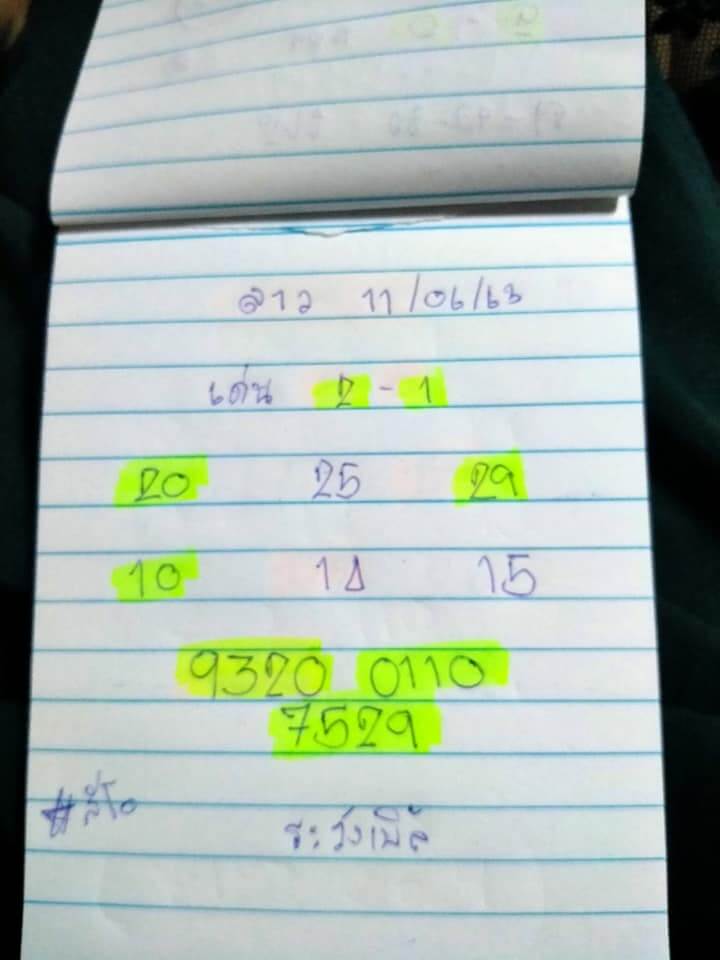 ลาว 11/06/63
เด่น 2 - 1
20 25 29
10 14 15
9320 0110
7529
ระวังเบิ้ล